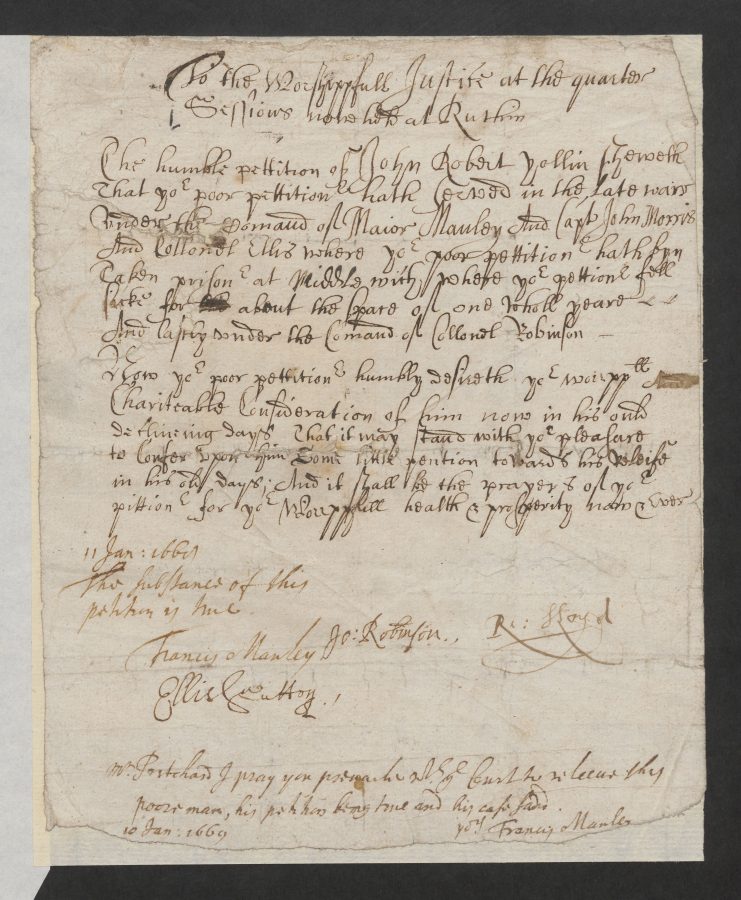 To the Worshippfull Justice at the quarter
Sessions now held at Ruthin
The humble pettition of John Robert yollin sheweth
That yor poor pettitionr hath served in the late wars
Under the Comand of Maior Manley And Capt John Morris
And Collonel Ellis where yor poor pettitionr hath byn
Taken prisonr at Middlewich, where yor pettionr fell
sicke for about the space of one wholl yeare
And lastly under the Comaud of Collonel Robinson
Now yor poor pettitionr humbly desireth yor worppll
Chariteable Consideration of him now in his ould
declineing days That it may stand with yor pleasure
to Confer upon him Some little pention towards his releife
in his old days; And it shall be the prayers of yor
pittionr for yor Worppfull health & prosperity now & ever
11 Jan: 1669
The substance of this
petition is true
Francis Manley Jo: Robinson. Ri: Lloyd
Ellis Sutton
Mr Pritchard I pray you with ye Court to releeue this
poore man, his petition being true and his case sadd.
10 Jan: 1669 yors Francis Manley